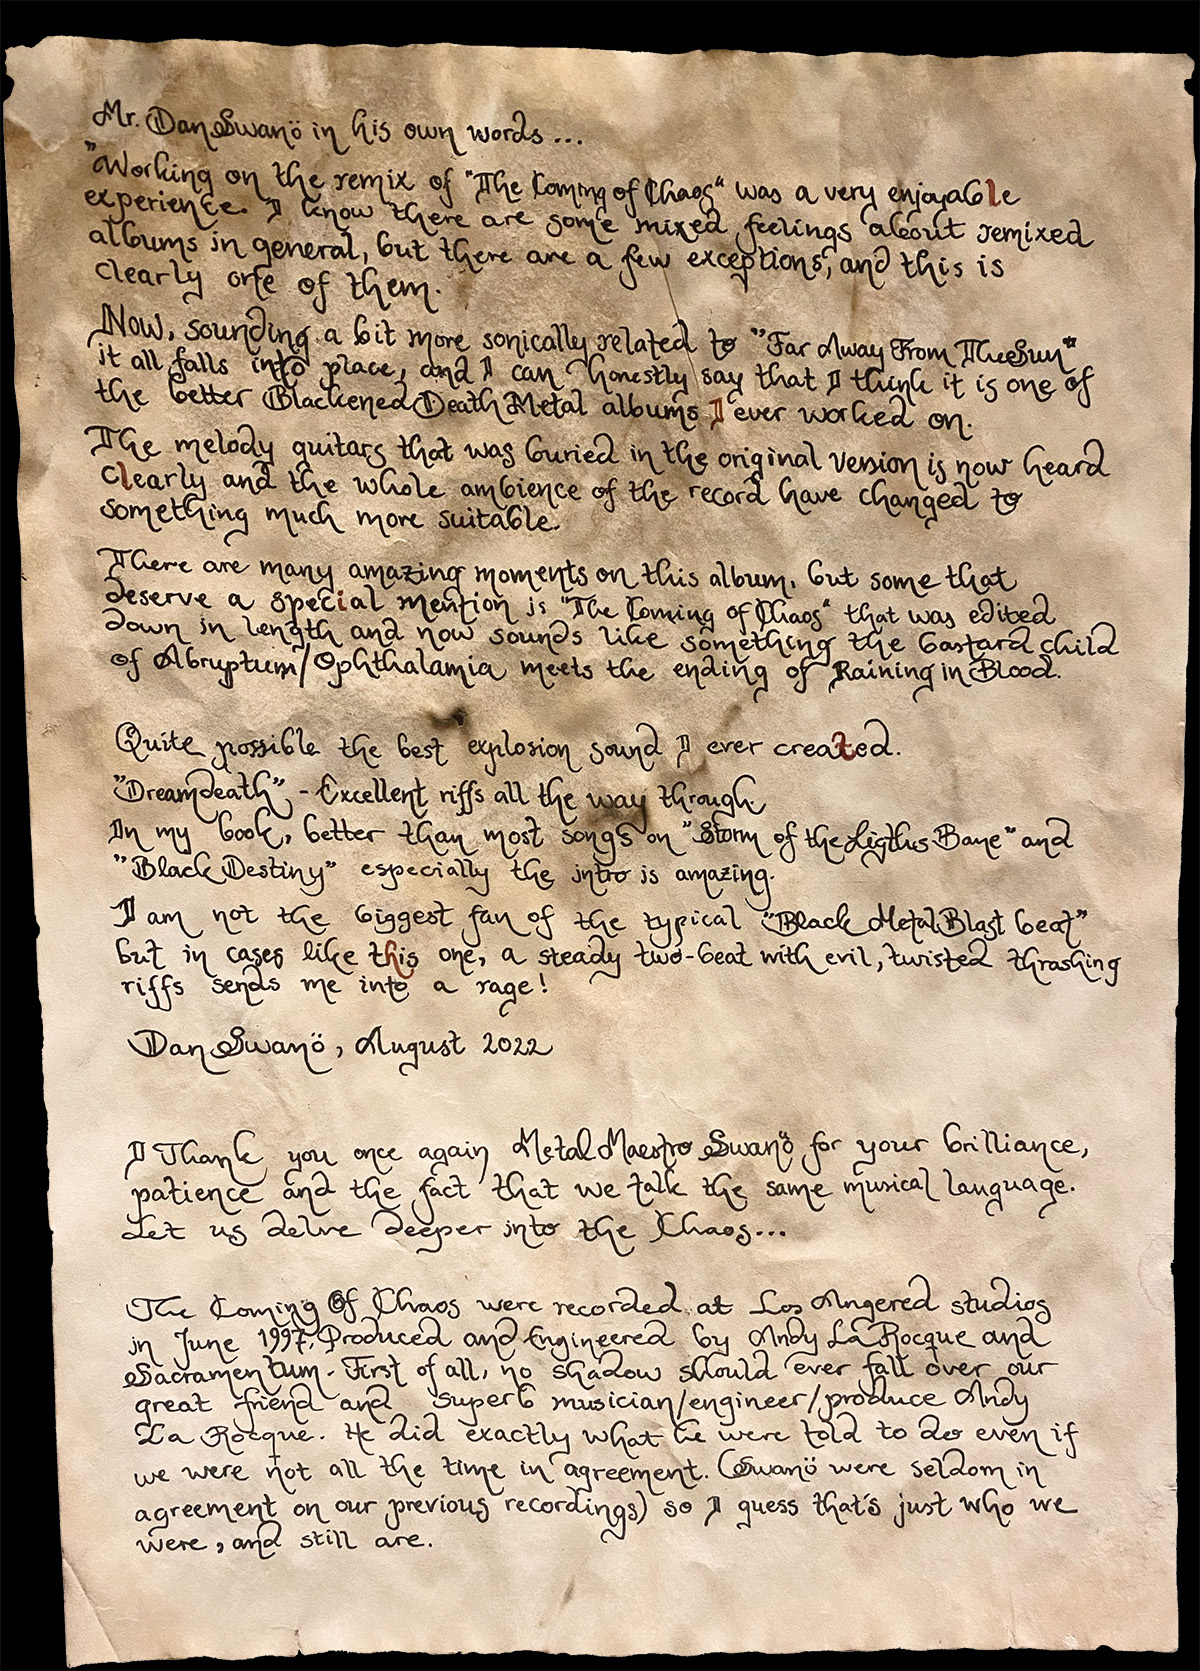 Mr. Dan Swanö in his own words...
"Working on the remix of "The Coming of Chaos" was a very enjoyable
experience. I know there are some mixed feelings about remixed
albums in general, but there are a few exceptions, and this is
clearly one of them.
Now, sounding a bit more sonically related to "Far Away From The Sun"
it all falls into place, and I can honestly say that I think it is one of
the better Blackened Death Metal albums I ever worked on.
The melody guitars that was buried in the original version is now heard
clearly and the whole ambience of the record have changed to
something much more suitable.
There are many amazing moments on this album, but some that
deserve a special mention is "The Coming of Chaos" that was edited
down in length and now sounds like something the bastard child
of Abruptum/Ophthalamia meets the ending of Raining in Blood.
Quite possible the best explosion sound I ever created.
"Dreamdeath" - Excellent riffs all the way through.
In my book, better than most songs on "Storm of the Ligths Bane" and
"Black Destiny" especially the intro is amazing.
I am not the biggest fan of the typical "Black Metal Blast beat"
but in cases like this one, a steady two-beat with evil, twisted thrashing
riffs sends me into a rage!
Dan Swanö, August 2022
I Thank you once again Metal Maestro Swanö for your brilliance,
patience and the fact that we talk the same musical language.
Let us delve deeper into the Chaos...
The Coming Of Chaos were recorded at Los Angered studios
in June 1997. Produced and Engineered by Andy La Rocque and
Sacramentum - First of all, no shadow should ever fall over our
great friend and superb musician/engineer/produce Andy
La Rocque. He did exactly what he were told to do even if
we were not all the time in agreement. (Swanö were seldom in
agreement on our previous recordings) so I guess that's just who we
were, and still are.